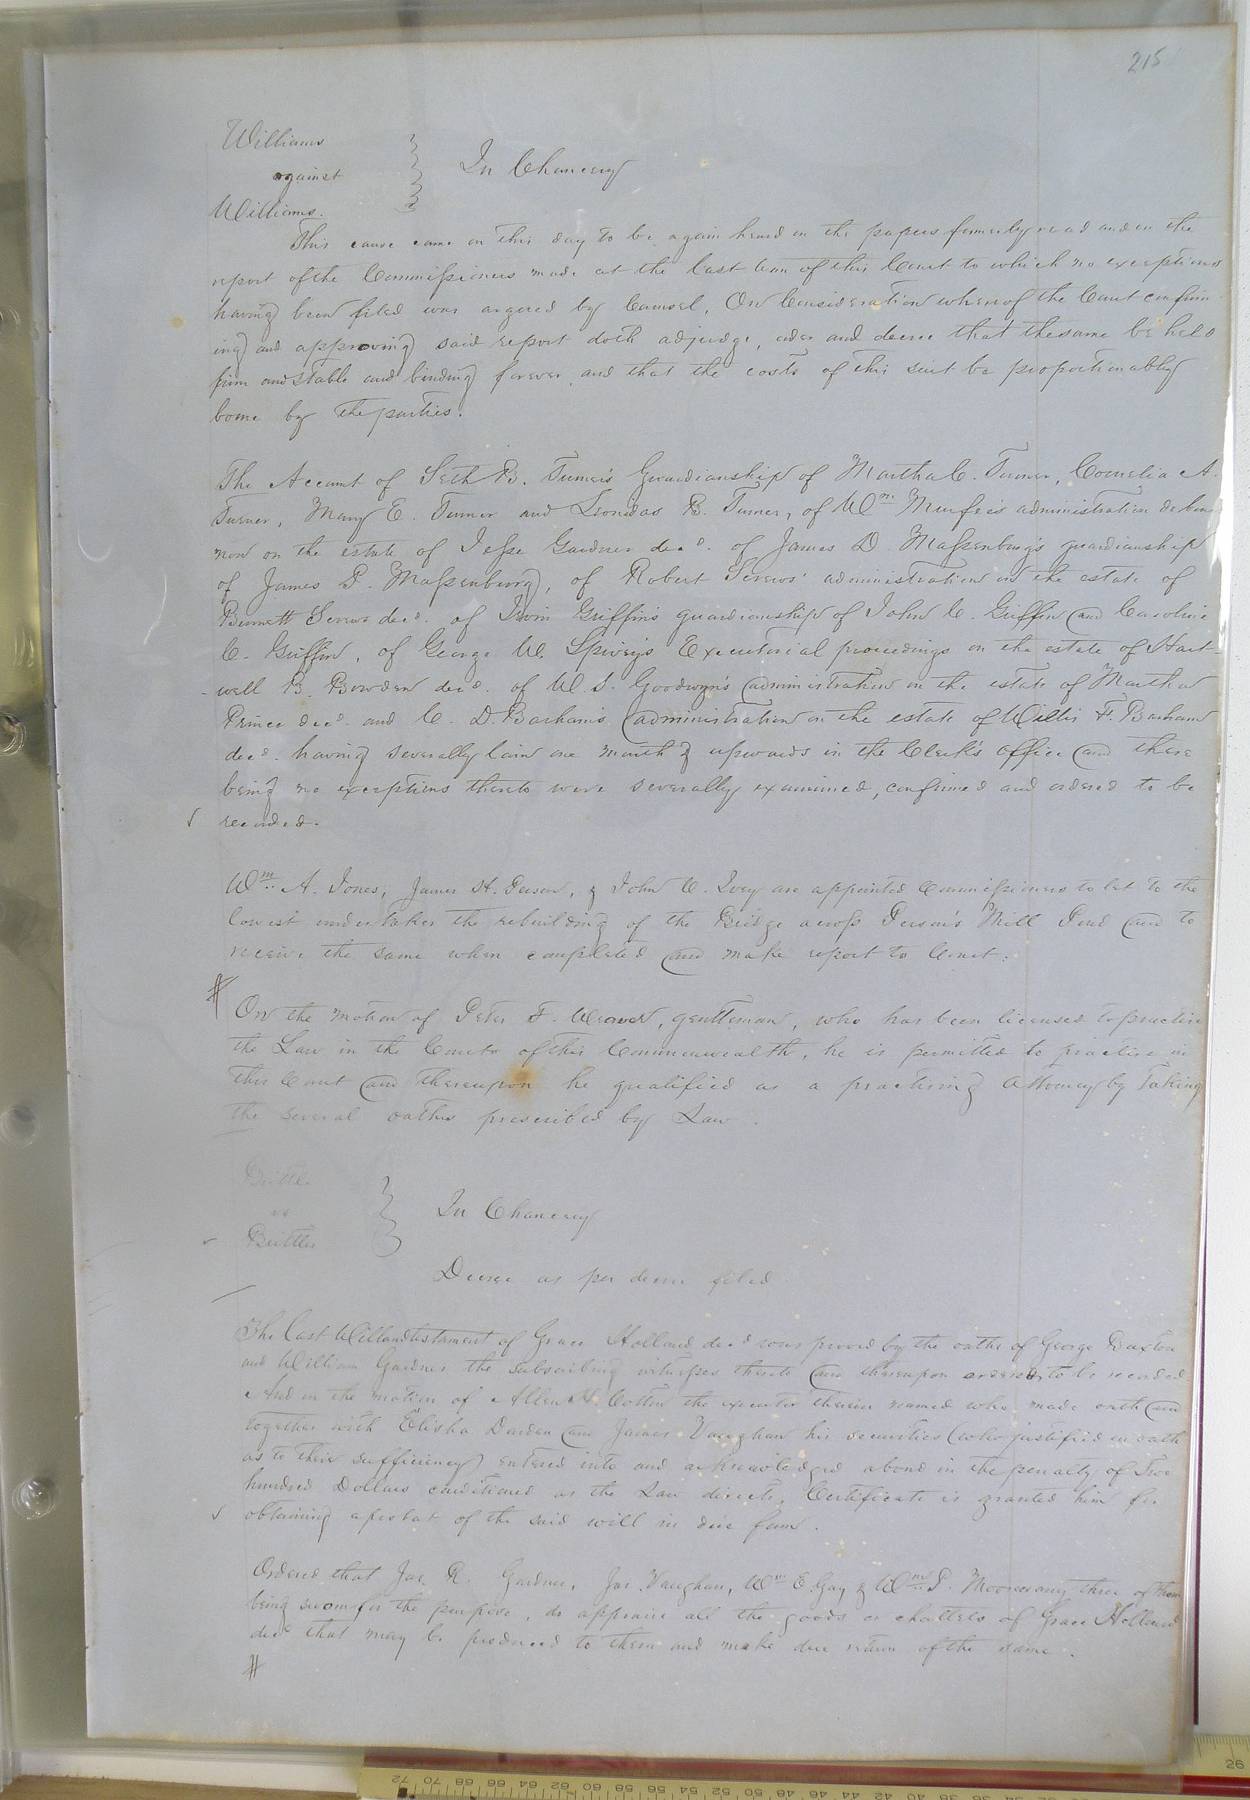 215
Williams
against
Williams.
In Chancery
This cause came on this day to be again heard on the papers formerly read and on the
report of the Commissioners made at the last term of this Court to which no exceptions
having been filed was argued by Counsel, On Consideration whereof the Court confirm
ing and approving said report doth adjudge, order and decree that the same be held
firm and stable and binding forever and that the costs of this suit be proportionably
borne by the parties.
The Account of Seth B. Turner's Guardianship of Martha C. Turner, Cornelia A.
Turner, Mary E. Turner and Leonidas B. Turner, of Wm Murfee's administration de bonis
non on the estate of Jesse Gardner decd. of James D. Massenburg's guardianship
of James P. Massenburg, of Robert Screws' administration on the estate of
Bennett Screws decd. of Irvin Griffin's guardianship of John C. Griffin and Caroline
C. Griffin, of George W. Spivey's Executorial proceedings on the estate of Hart-
well B. Bowden decd. of W. S. Goodwyn's administration on the estate of Martha
Prince decd. and C. D. Barham's administration on the estate of Willis F. Barham
decd. having severally lain one month & upwards in the Clerk's office and there
being no exceptions thereto were severally examined, confirmed and ordered to be
recorded.
Wm. A. Jones, James H. Person, & John C. Ivey are appointed Commissioners to let to the
lowest undertaker the rebuilding of the Bridge across Person's Mill Pond and to
receive the same when completed and make report to Court.
# On the motion of Peter F. Weaver, gentleman, who has been licensed to practice
the Law in the Courts of this Commonwealth, he is permitted to practice in
this Court and thereupon he qualified as a practising Attorney by taking
the several oaths prescribed by Law.
Brittle
vs
Brittle
In Chancery
Decree as per decree filed
The last Will and testament of Grace Holland decd was proved by the oaths of George Buxton
and William Gardner the subscribing witnesses thereto and thereupon ordered to be recorded
And on the motion of Allen Cotton the executor therein named who made oath and
together with Elisha Darden and James Vaughan his securities (who justified on oath
as to their sufficiency) entered into and acknowledged a bond in the penalty of Two
hundred Dollars conditioned as the Law directs, Certificate is granted him for
obtaining a probat of the said will in due form.
Ordered that Jas R. Gardner, Jas. Vaughan, Wm E. Gay & Wm. P. Moore any three of them
being sworn for the purpose, do appraise all the goods or chattels of Grace Holland
decd that may be produced to them and make due return of the same.
#
72 70 68 66 64 62 60 58 56 54 52 50 48 46 44 42 40 38 36 34 32 30
26